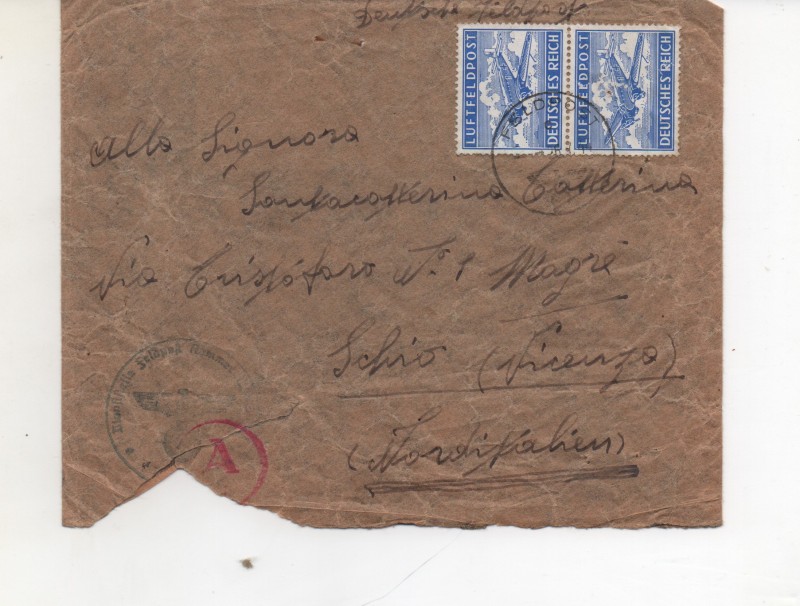 Deutsche Feldpost
LUFTFELDPOST DEUTSCHES REICH
LUFTFELDPOST DEUTSCHES REICH
FELDPOST
Alla Signora
Santacatterina Catterina
Via Crisposaro N. 1 Magrè
Schio (Vicenza)
(Norditalien)
Feldpost Nummer
A